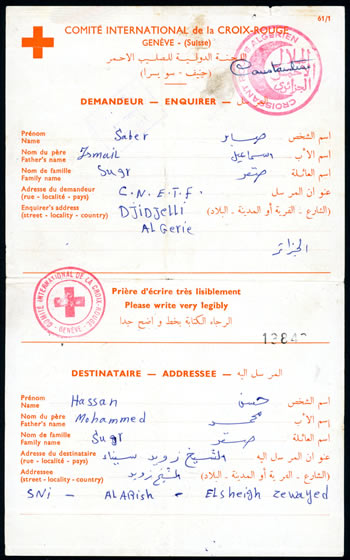 61/1
COMITÉ INTERNATIONAL de la CROIX-ROUGE
GENÈVE - (Suisse)
اللجنة الدولية للصليب الاحمر
(جنيف - سويسرا)
CROISSANT ALGERIEN
الهلال
الجزائري
Constantine
DEMANDEUR — ENQUIRER —
Prénom
Name
Saber
صابر
اسم الشخص
Nom du père
Father's name
Ismail
اسماعيل
اسم الأب
Nom de famille
Family name
Sugr
صقر
اسم العائلة
Adresse du demandeur
(rue - localité - pays)
C.N.E.T.F.
عنوان المرسل
Enquirer's address
(street - locality - country)
DJidjelli
(الشارع - القرية أو المدينة - البلاد)
ALGerie
الجزائر
COMITÉ INTERNATIONAL DE LA CROIX-ROUGE
GENÈVE
Prière d'écrire très lisiblement
Please write very legibly
الرجاء الكتابة بخط واضح جدا
DESTINATAIRE — ADDRESSEE — المرسل اليه
Prénom
Name
Hassan
حسن
اسم الشخص
Nom du père
Father's name
Mohammed
محمد
اسم الأب
Nom de famille
Family name
Sugr
صقر
اسم العائلة
Adresse du destinataire
(rue - localité - pays)
الشيخ زويد سيناء
عنوان المرسل اليه
Addressee
(street - locality - country)
الشيخ زويد
(الشارع - القرية أو المدينة - البلاد)
SNi - ALARish - Elsheigh zewayed